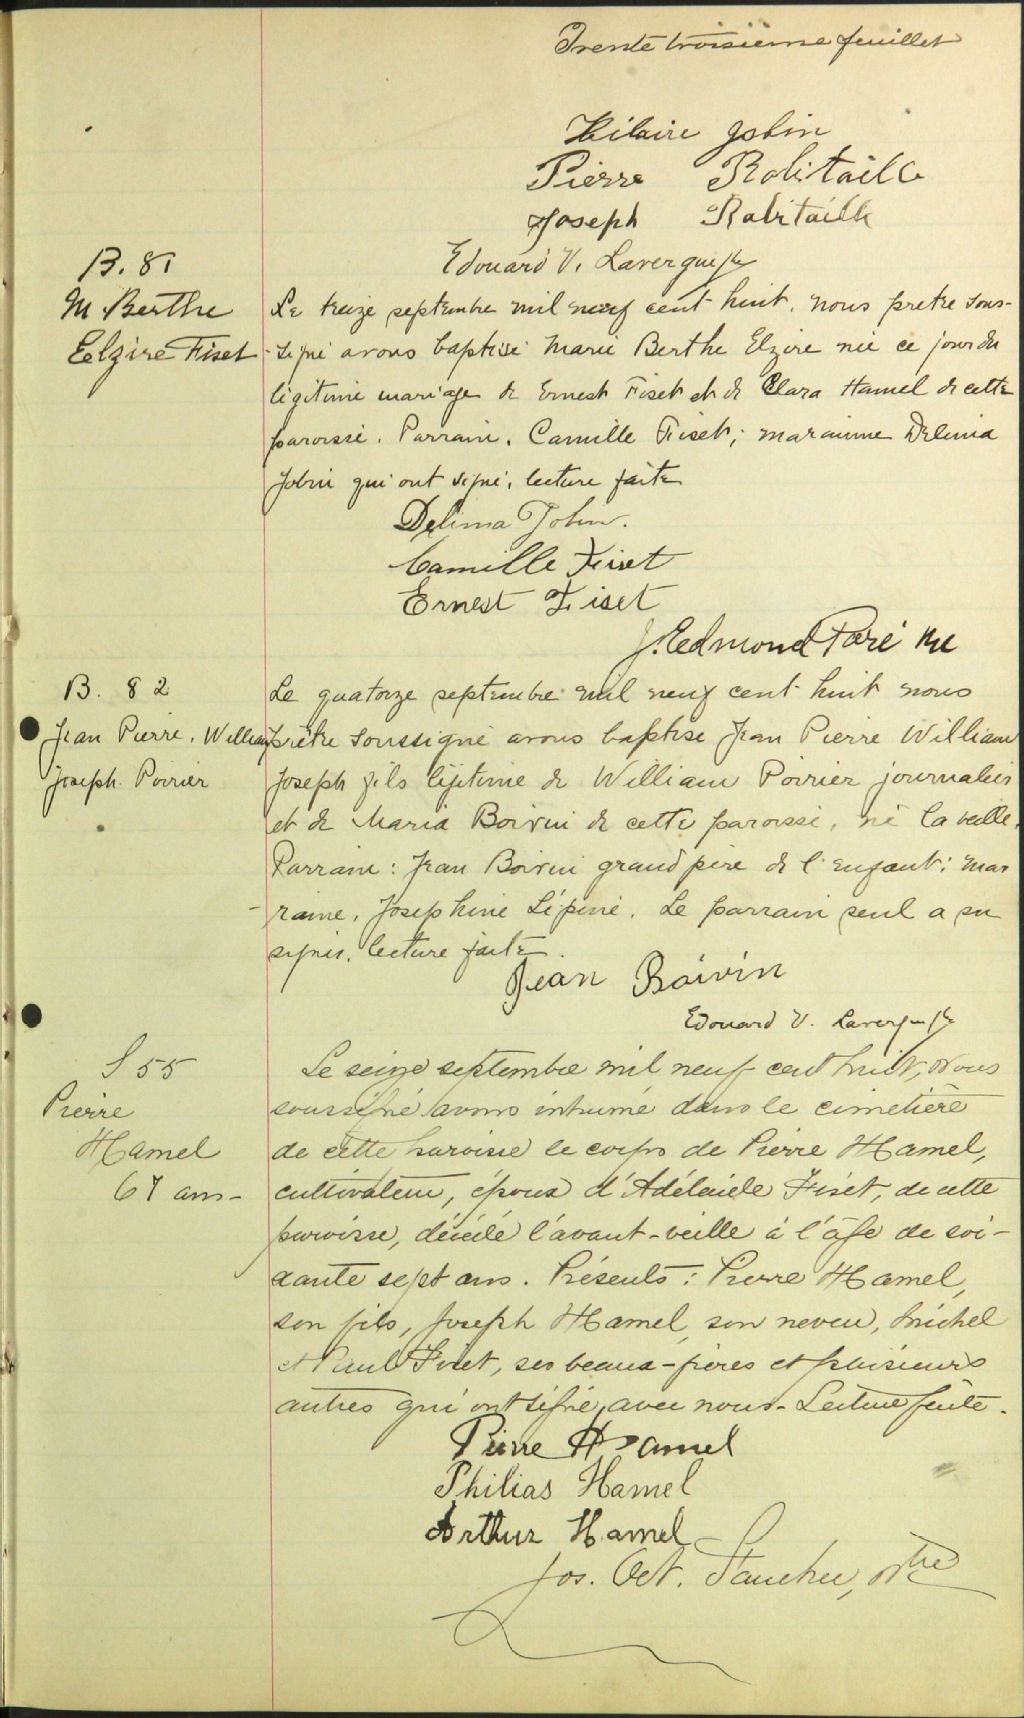 Trente troisième feuillet
Hilaire Jobin
Pierre Robitaille
Joseph Robitaille
Edouard V. Lavergne ptre
B. 81
M Berthe
Eelzire Fiset
Le treize septembre mil neuf cent huit, nous pretre sous-
signé avons baptisé Marie Berthe Elzire née ce jour du
légitime mariage de Ernest Fiset et de Clara Hamel de cette
paroisse. Parrain, Camille Fiset; marainne Delima
Jobin qui ont signé, lecture faite
Delima Jobin.
Camille Fiset
Ernest Fiset
J. Edmond Paré ptre
B. 82
Jean Pierre, William
Joseph Poirier
Le quatorze septembre mil neuf cent huit nous
prêtre soussigné avons baptisé Jean Pierre William
Joseph fils légitime de William Poirier journalier
et de Maria Boivin de cette paroisse, né la veille.
Parrain: Jean Boivin grand père de l'enfant; mar
raine, Josephine Lépine. Le parrain seul a su
signer, lecture faite.
Jean Boivin
Edouard V. Lavergne ptre
S 55
Pierre
Hamel
67 ans-
Le seize septembre mil neuf cent huit, Nous
soussigné avons inhumé dans le cimetière
de cette paroisse le corps de Pierre Hamel,
cultivateur, époux d'Adélaïde Fiset, de cette
paroisse, décédé l'avant-veille à l'âge de soi-
xante sept ans. Présents: Pierre Hamel,
son fils, Joseph Hamel, son neveu, Michel
et Paul Fiset, ses beaux-frères et plusieurs
autres qui ont signé avec nous- Lecture faite.
Pierre Hamel
Philias Hamel
Arthur Hamel
Jos. Oct. Faucher, ptre